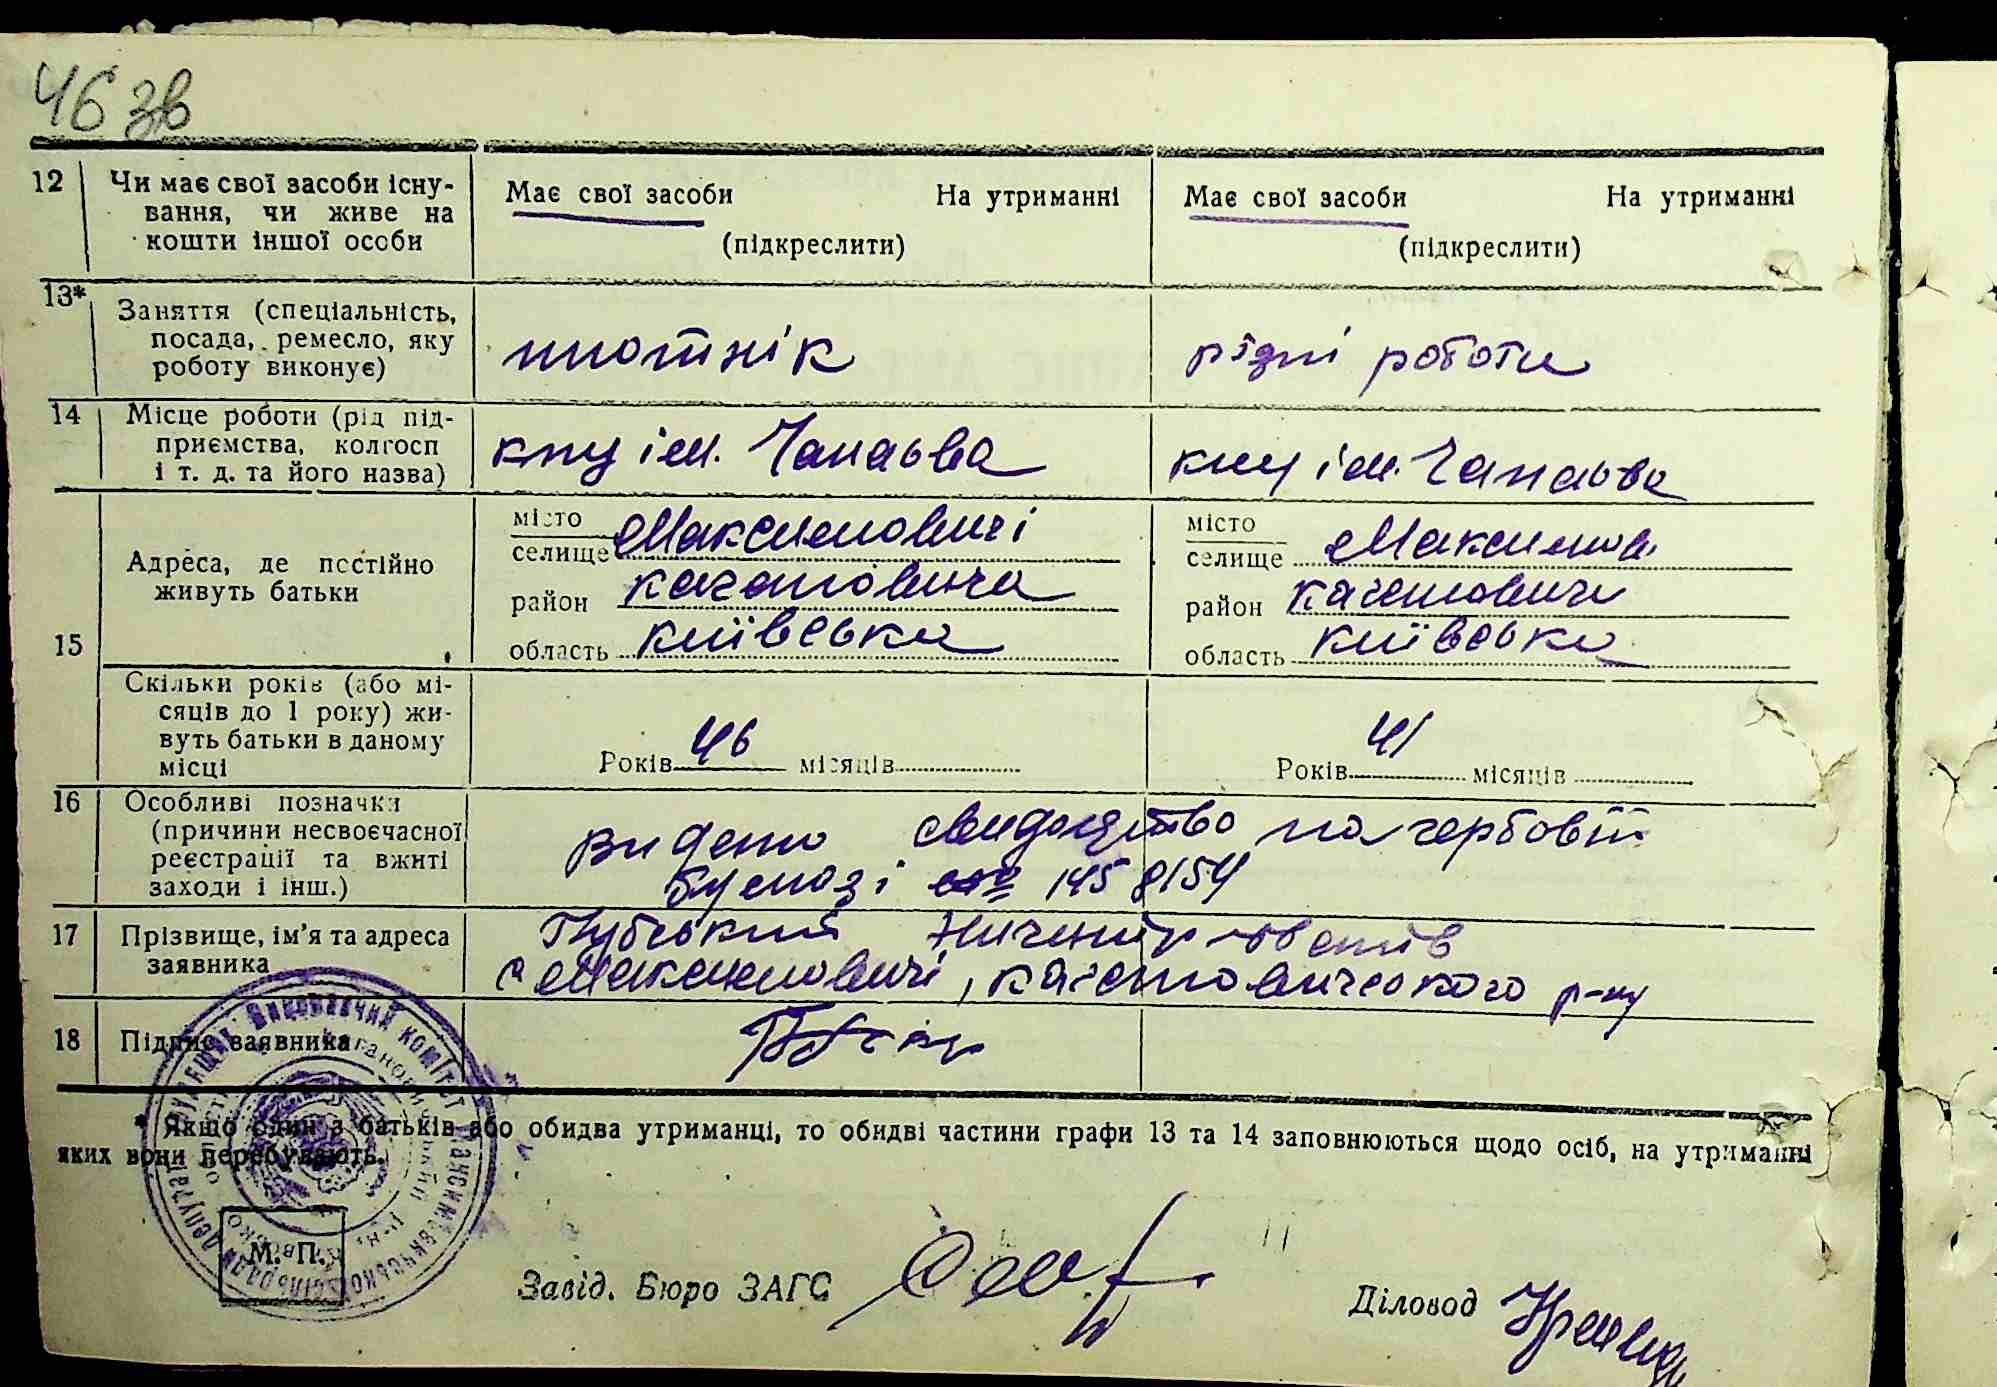 46 зв
12 Чи має свої засоби існу-
вання, чи живе на
кошти іншої особи
Має свої засоби На утриманні
(підкреслити)
Має свої засоби На утриманні
(підкреслити)
13* Заняття (спеціальність,
посада, ремесло, яку
роботу виконує)
плотнік
різні роботи
14 Місце роботи (рід під-
приємства, колгосп
і т. д. та його назва)
ім. Чапаєва
ім. Чапаєва
15 Адреса, де постійно
живуть батьки
місто
селище Максимовичі
район Кагановича
область Київська
місто
селище Максимов
район Кагановича
область Київська
Скільки років (або мі-
сяців до 1 року) жи-
вуть батьки в даному
місці
Років 46 місяців
Років 41 місяців
16 Особливі позначки
(причини несвоєчасної
реєстрації та вжиті
заходи і інш.)
видано свидоцтво на гербовій
бумазі 1458154
17 Прізвище, ім'я та адреса
заявника
с Максимовичі, Кагановичского р-ну
18 Підпис заявника
* Якщо один з батьків або обидва утриманці, то обидві частини графи 13 та 14 заповнюються щодо осіб, на утриманні
яких вони перебувають.
М. П.
Завід. Бюро ЗАГС
Діловод